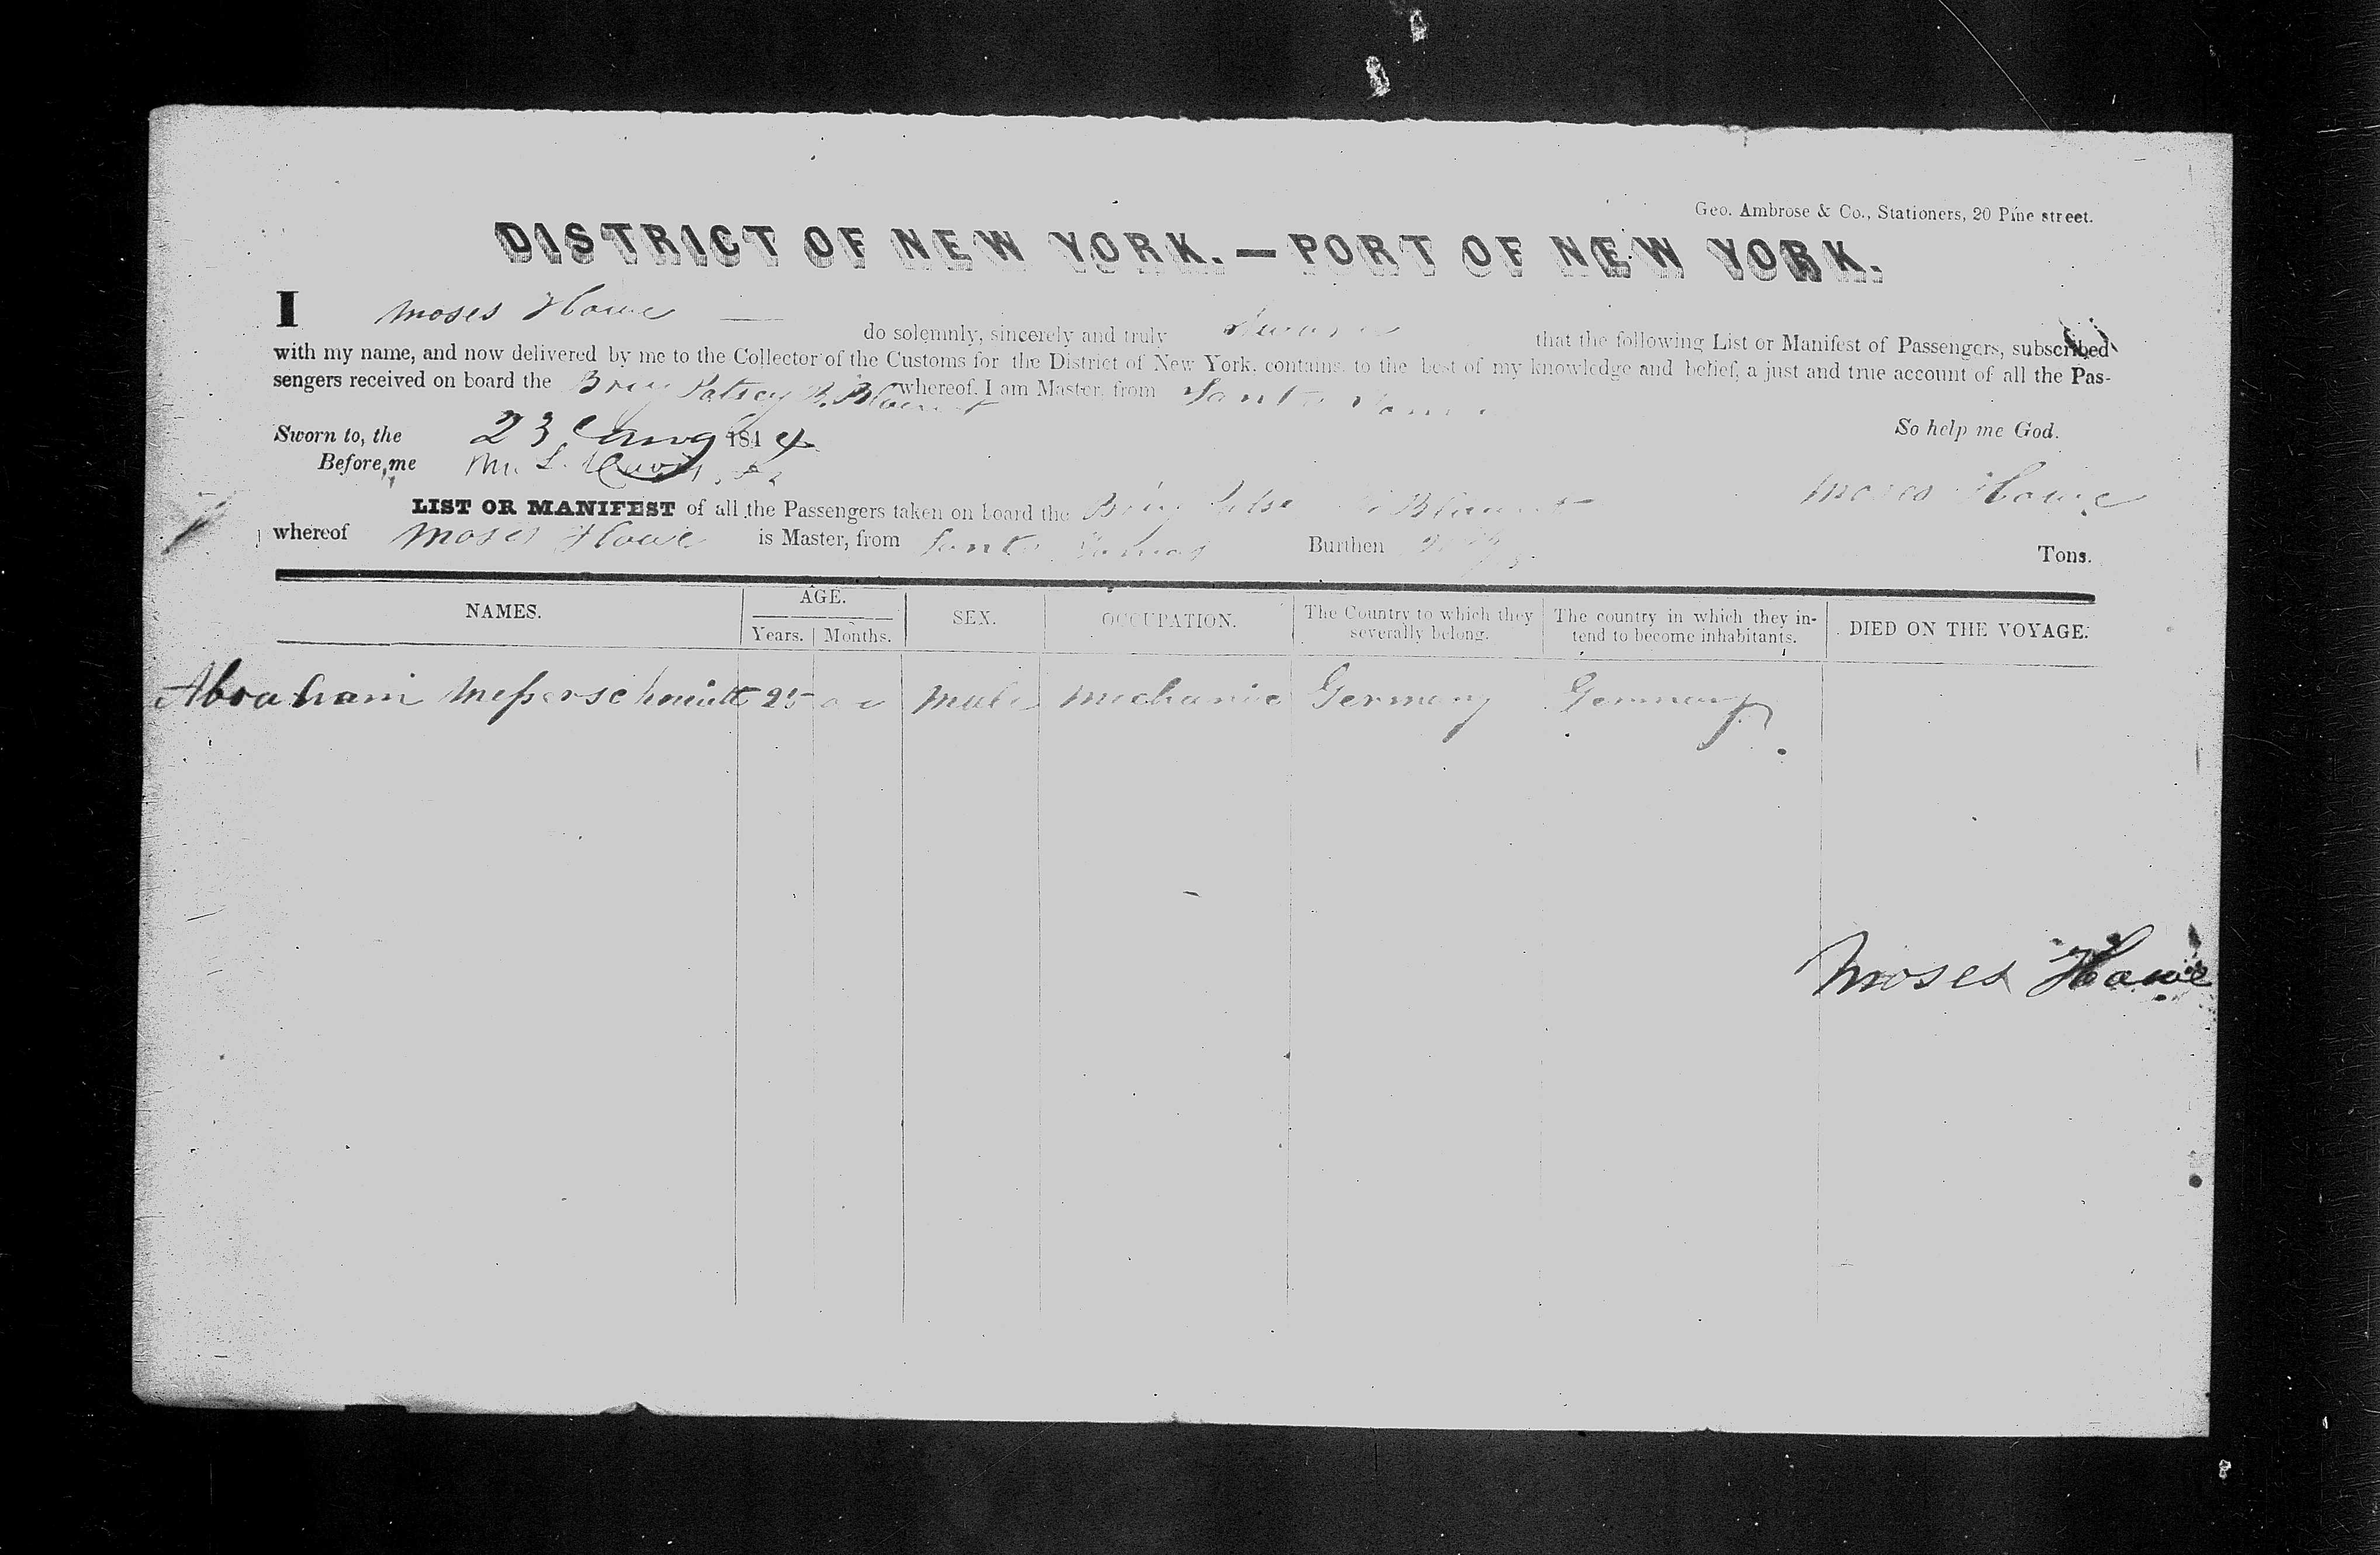 Geo. Ambrose & Co., Stationers, 20 Pine street.
DISTRICT OF NEW YORK.—PORT OF NEW YORK.
I Moses Howe do solemnly, sincerely and truly that the following List or Manifest of Passengers, subscribed
with my name, and now delivered by me to the Collector of the Customs for the District of New York, contains, to the best of my knowledge and belief, a just and true account of all the Pas-
sengers received on board the Brig Patsey B. Blount whereof I am Master, from Santo
Sworn to, the 23 Aug 1844 So help me God.
Before me
Moses Howe
LIST OR MANIFEST of all the Passengers taken on board the Brig Blount
whereof Moses Howe is Master, from Santo Burthen Tons.
NAMES. AGE. SEX. OCCUPATION. The Country to which they severally belong. The country in which they in-tend to become inhabitants. DIED ON THE VOYAGE.
Years. Months.
Abraham Messerschmidt 25 Male Mechanic Germany Germany
Moses Howe